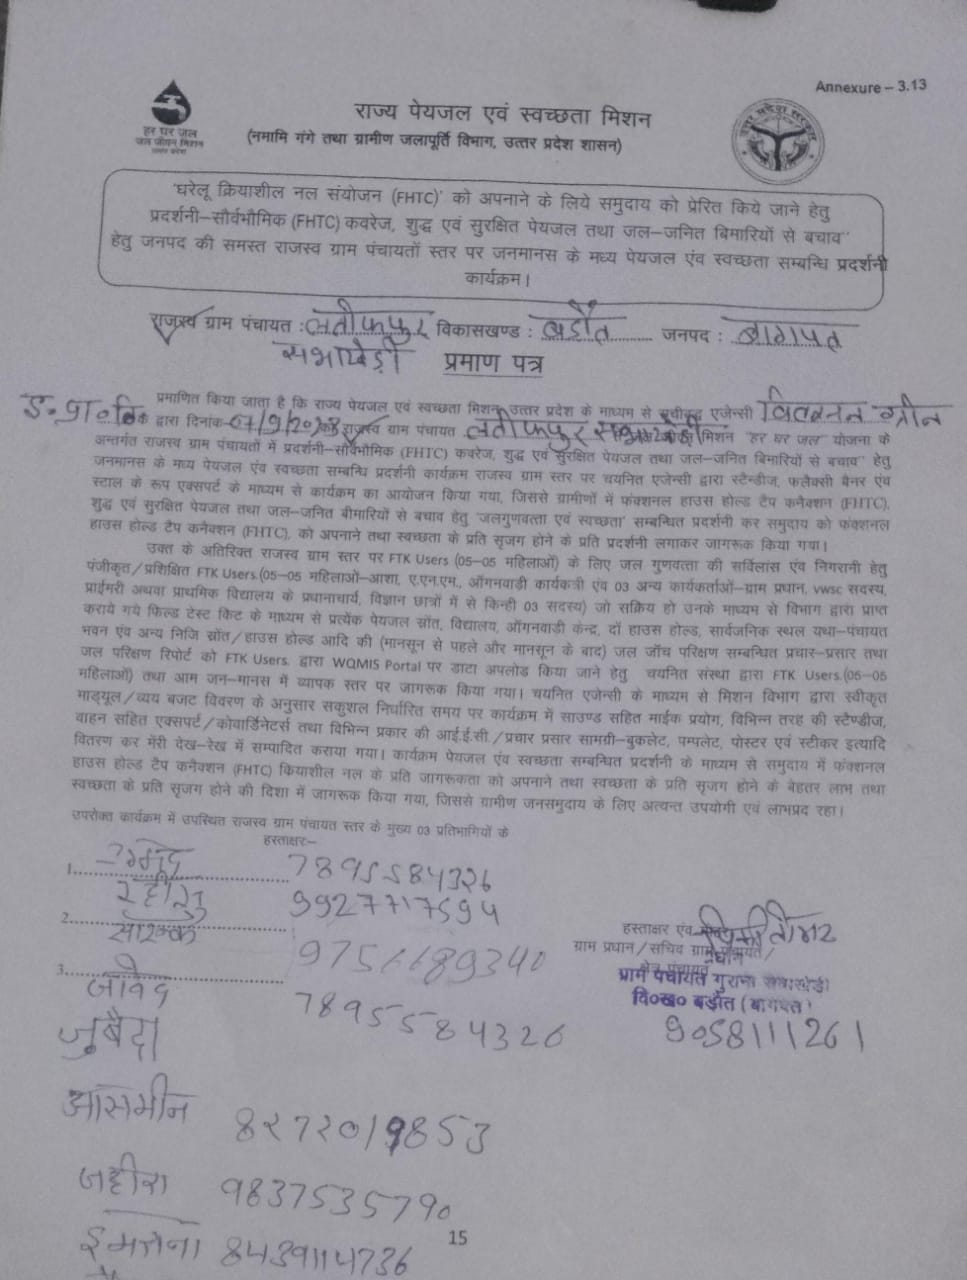 Annexure – 3.13
हर घर जल
जल जीवन मिशन
राज्य पेयजल एवं स्वच्छता मिशन
(नमामि गंगे तथा ग्रामीण जलापूर्ति विभाग, उत्तर प्रदेश शासन)
'घरेलू क्रियाशील नल संयोजन (FHTC)' को अपनाने के लिये समुदाय को प्रेरित किये जाने हेतु
प्रदर्शनी–सौर्वभौमिक (FHTC) कवरेज, शुद्ध एवं सुरक्षित पेयजल तथा जल–जनित बिमारियों से बचाव''
हेतु जनपद की समस्त राजस्व ग्राम पंचायतों स्तर पर जनमानस के मध्य पेयजल एंव स्वच्छता सम्बन्धि प्रदर्शनी
कार्यक्रम।
राजस्व ग्राम पंचायत : लतीफपुर विकासखण्ड : बडौत जनपद : बागपत
प्रमाण पत्र
प्रमाणित किया जाता है कि राज्य पेयजल एवं स्वच्छता मिशन, उत्तर प्रदेश के माध्यम से सूचीबद्ध एजेन्सी
इ० प्रा० लि० के द्वारा दिनांक राजस्व ग्राम पंचायत लतीफपुर मिशन 'हर घर जल' योजना के
अन्तर्गत राजस्व ग्राम पंचायतों में प्रदर्शनी–सौर्वभौमिक (FHTC) कवरेज, शुद्ध एवं सुरक्षित पेयजल तथा जल–जनित बिमारियों से बचाव'' हेतु
जनमानस के मध्य पेयजल एंव स्वच्छता सम्बन्धि प्रदर्शनी कार्यक्रम राजस्व ग्राम स्तर पर चयनित एजेन्सी द्वारा स्टैन्डीज, फलैक्सी बैनर एंव
स्टाल के रूप एक्सपर्ट के माध्यम से कार्यक्रम का आयोजन किया गया, जिससे ग्रामीणों में फंक्शनल हाउस होल्ड टैप कनैक्शन (FHTC),
शुद्ध एवं सुरक्षित पेयजल तथा जल–जनित बीमारियों से बचाव हेतु 'जलगुणवत्ता एवं स्वच्छता' सम्बन्धित प्रदर्शनी कर समुदाय को फंक्शनल
हाउस होल्ड टैप कनैक्शन (FHTC), को अपनाने तथा स्वच्छता के प्रति सृजग होने के प्रति प्रदर्शनी लगाकर जागरूक किया गया।
उक्त के अतिरिक्त राजस्व ग्राम स्तर पर FTK Users (05–05 महिलाओं) के लिए जल गुणवत्ता की सर्विलांस एंव निगरानी हेतु
पंजीकृत/प्रशिक्षित FTK Users.(05–05 महिलाओं–आशा, ए.एन.एम., ऑगनवाड़ी कार्यकत्री एंव 03 अन्य कार्यकर्ताओं–ग्राम प्रधान, vwsc सदस्य,
प्राईमरी अथवा प्राथमिक विद्यालय के प्रधानाचार्य, विज्ञान छात्रों में से किन्ही 03 सदस्य) जो सक्रिय हो उनके माध्यम से विभाग द्वारा प्राप्त
कराये गये फिल्ड टेस्ट किट के माध्यम से प्रत्येक पेयजल स्रोंत, विद्यालय, ऑगनवाड़ी केन्द्र, दों हाउस होल्ड, सार्वजनिक स्थल यथा–पंचायत
भवन एंव अन्य निजि स्रोंत/हाउस होल्ड आदि की (मानसून से पहले और मानसून के बाद) जल जॉच परिक्षण सम्बन्धित प्रचार–प्रसार तथा
जल परिक्षण रिपोर्ट को FTK Users. द्वारा WQMIS Portal पर डाटा अपलोड किया जाने हेतु चयनित संस्था द्वारा FTK Users.(05–05
महिलाओं) तथा आम जन–मानस में व्यापक स्तर पर जागरूक किया गया। चयनित एजेन्सी के माध्यम से मिशन विभाग द्वारा स्वीकृत
माड्यूल/व्यय बजट विवरण के अनुसार सकुशल निर्धारित समय पर कार्यक्रम में साउण्ड सहित माईक प्रयोग, विभिन्न तरह की स्टैण्डीज,
वाहन सहित एक्सपर्ट/कोवार्डिनेटर्स तथा विभिन्न प्रकार की आई.ई.सी./प्रचार प्रसार सामग्री–बुकलेट, पम्पलेट, पोस्टर एवं स्टीकर इत्यादि
वितरण कर मेंरी देख–रेख में सम्पादित कराया गया। कार्यक्रम पेयजल एंव स्वच्छता सम्बन्धित प्रदर्शनी के माध्यम से समुदाय में फंक्शनल
हाउस होल्ड टैप कनैक्शन (FHTC) कियाशील नल के प्रति जागरूकता को अपनाने तथा स्वच्छता के प्रति सृजग होने के बेहतर लाभ तथा
स्वच्छता के प्रति सृजग होने की दिशा में जागरूक किया गया, जिससे ग्रामीण जनसमुदाय के लिए अत्यन्त उपयोगी एवं लाभप्रद रहा।
उपरोक्त कार्यक्रम में उपस्थित राजस्व ग्राम पंचायत स्तर के मुख्य 03 प्रतिभागियों के
हस्ताक्षर:–
1. 7895584326
2. 9927717594
हस्ताक्षर एंव
ग्राम प्रधान/सचिव ग्राम पंचायत/
प्रधान
3.
ग्राम पंचायत गुराना
वि०ख० बड़ौत (बागपत)
जावेद 7895584326
9058111261
जुबैदा
आसमीन 8272019853
जहीरा 9837535790
इमराना 8439114736
15